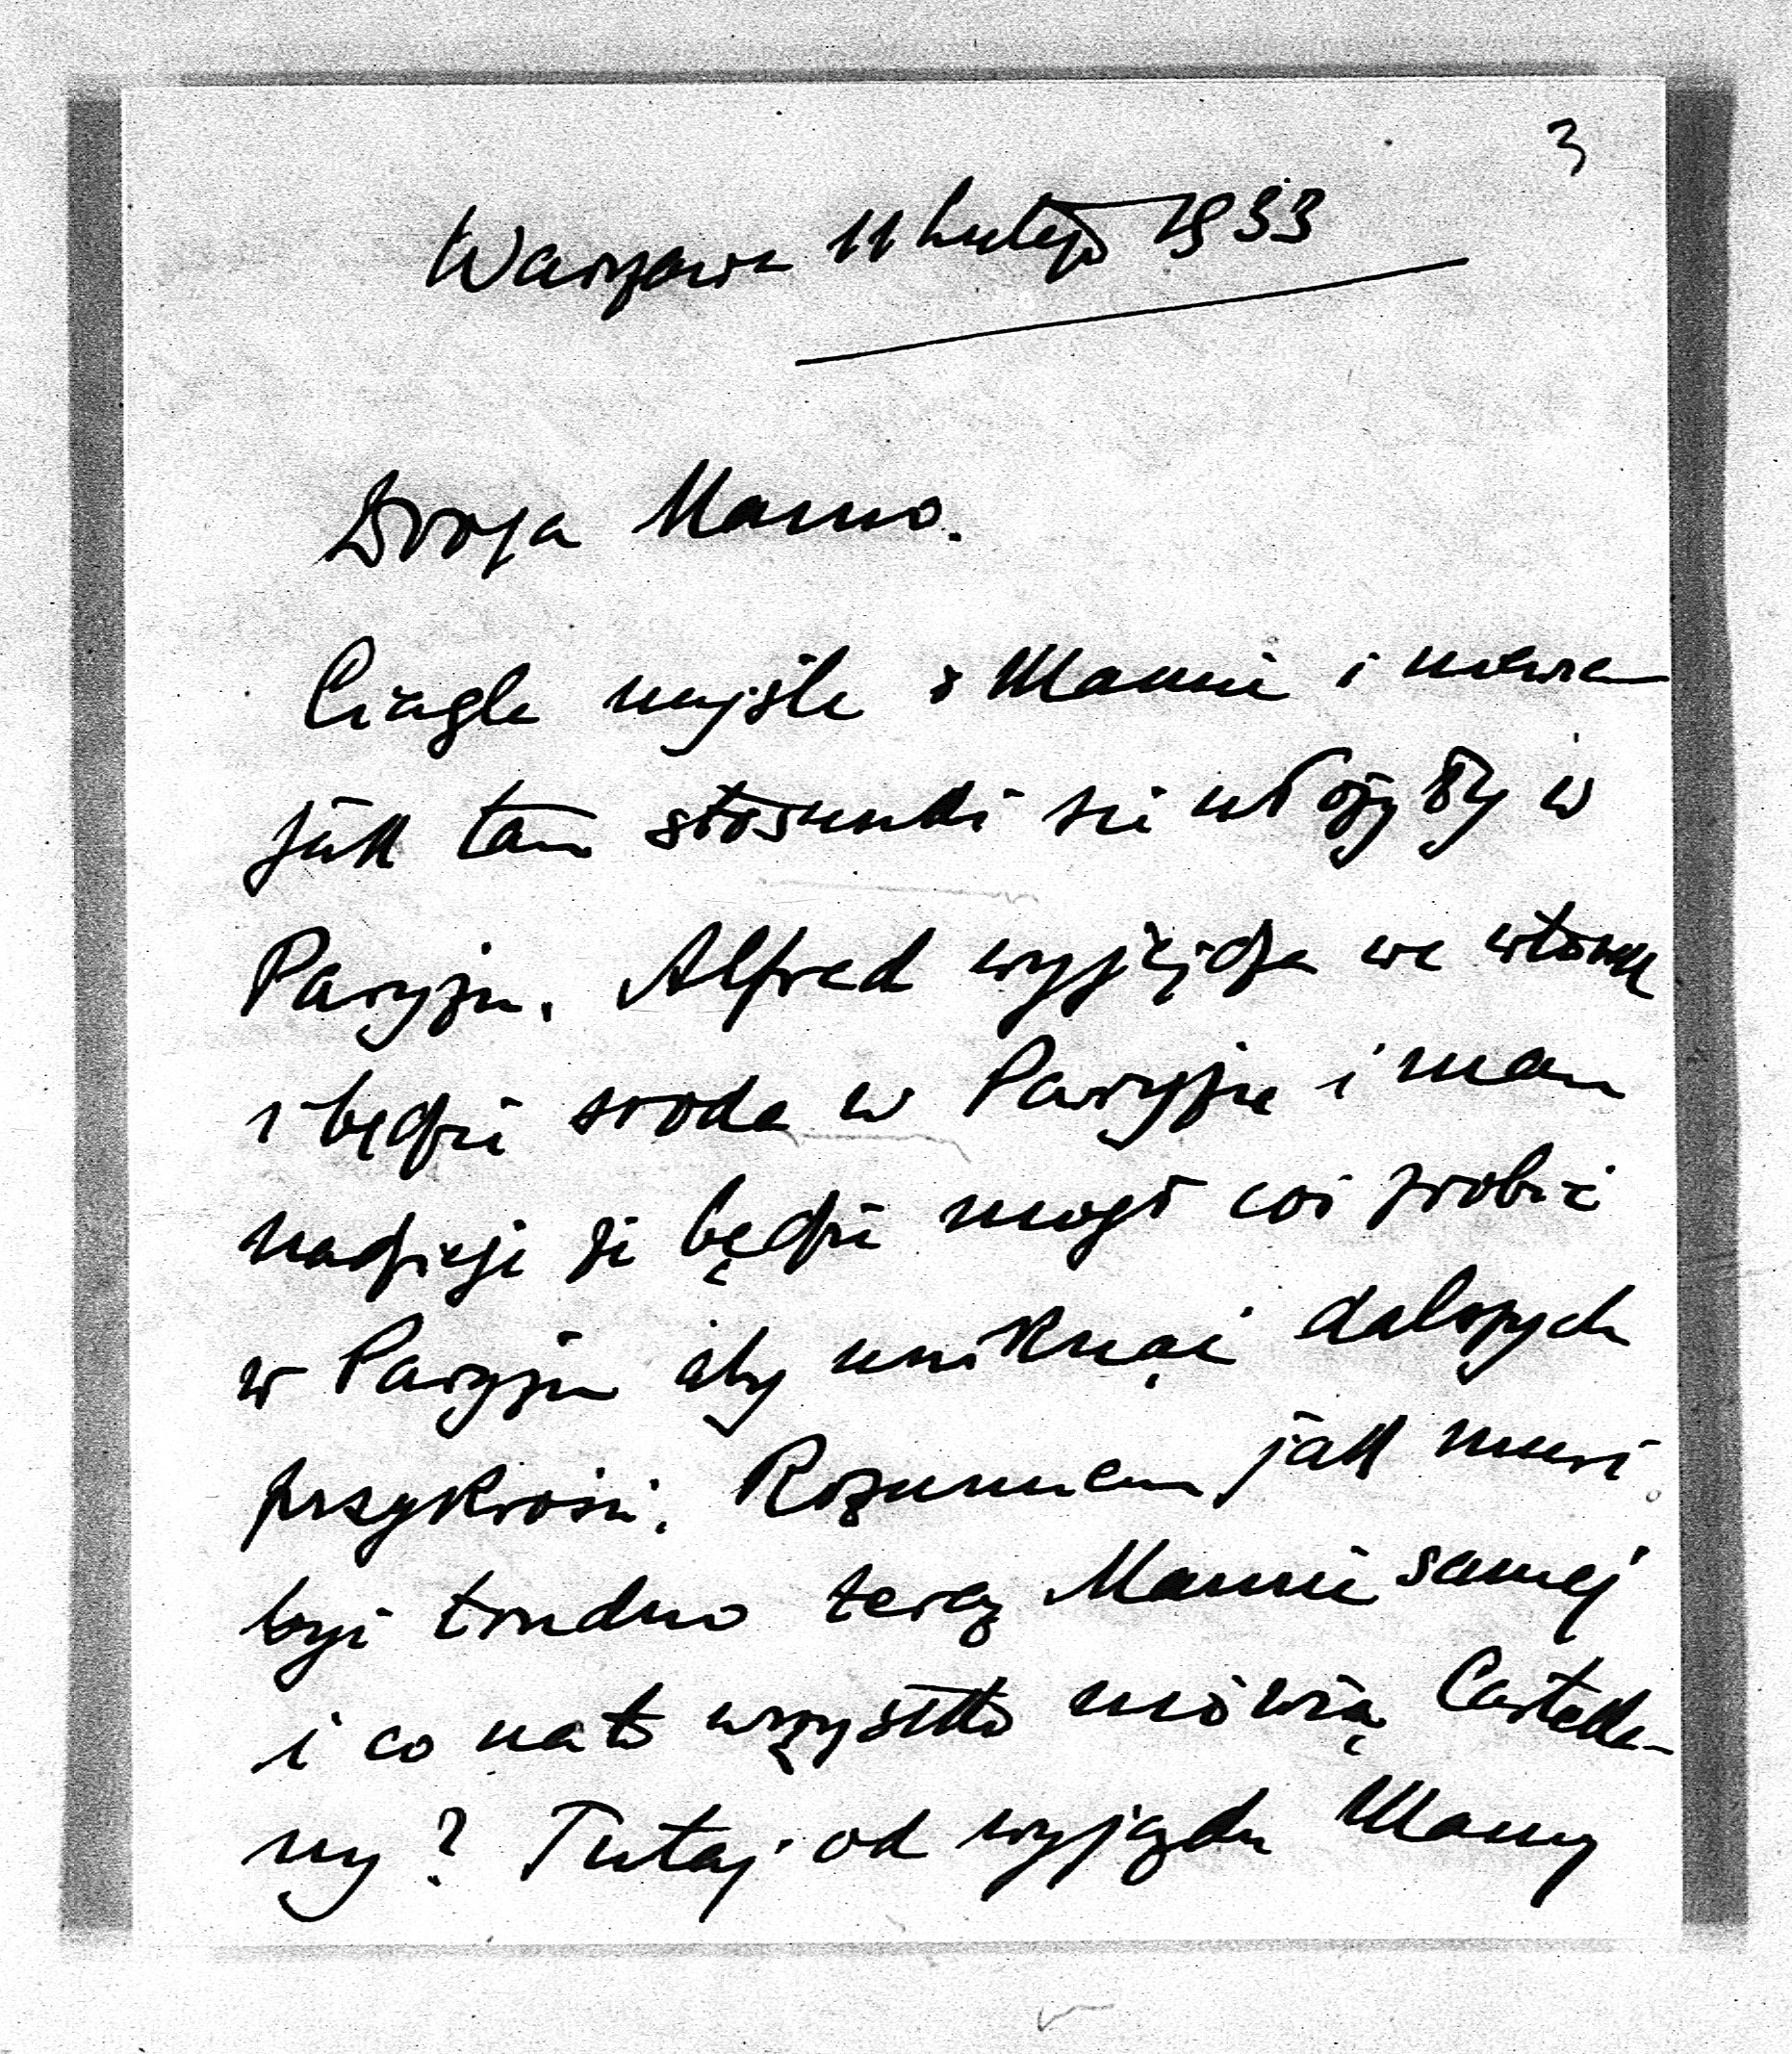 3
Warszawa 11 Lutego 1933
Droga Mamo.
Ciągle myśle o Mamie i
jak tam stosunki sie ułożyły w
Paryżu. Alfred wyjeżdża we wtorek
i będzie środe w Paryżu i mam
nadzieje że będzie mogł coś zrobić
w Paryżu aby uniknąć dalszych
przykrości. Rozumiem jak musi
być trudno teraz Mamie samej
i co na to wszystko mówią Castella-
ny? Tutaj od wyjazdu Mamy